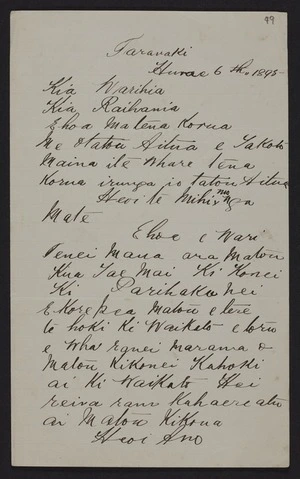 49
Taranaki
Hurae 6 th, 1895
Kia Warihia
Kia Raihania
Ehoa Ma tena Korua
Me o tatou Aitua e Takoto
Maina ite Whare tena
Korua irunga io tatou Aitua
Heoi te Mihi mo nga
Mate
Ehoa e Wari
Tenei Mana ara Matou
Kua Tae Mai Ki Konei
Ki Parihaka nei
E Kore pea Matou e tere
te hoki Ki Waikato e toru
e Wha ranei Marama o
Matou Kikonei Kahoki
ai Ki Waikato Hei
reira ranu Kahaere atu
ai Matou Kikona
Heoi Ano